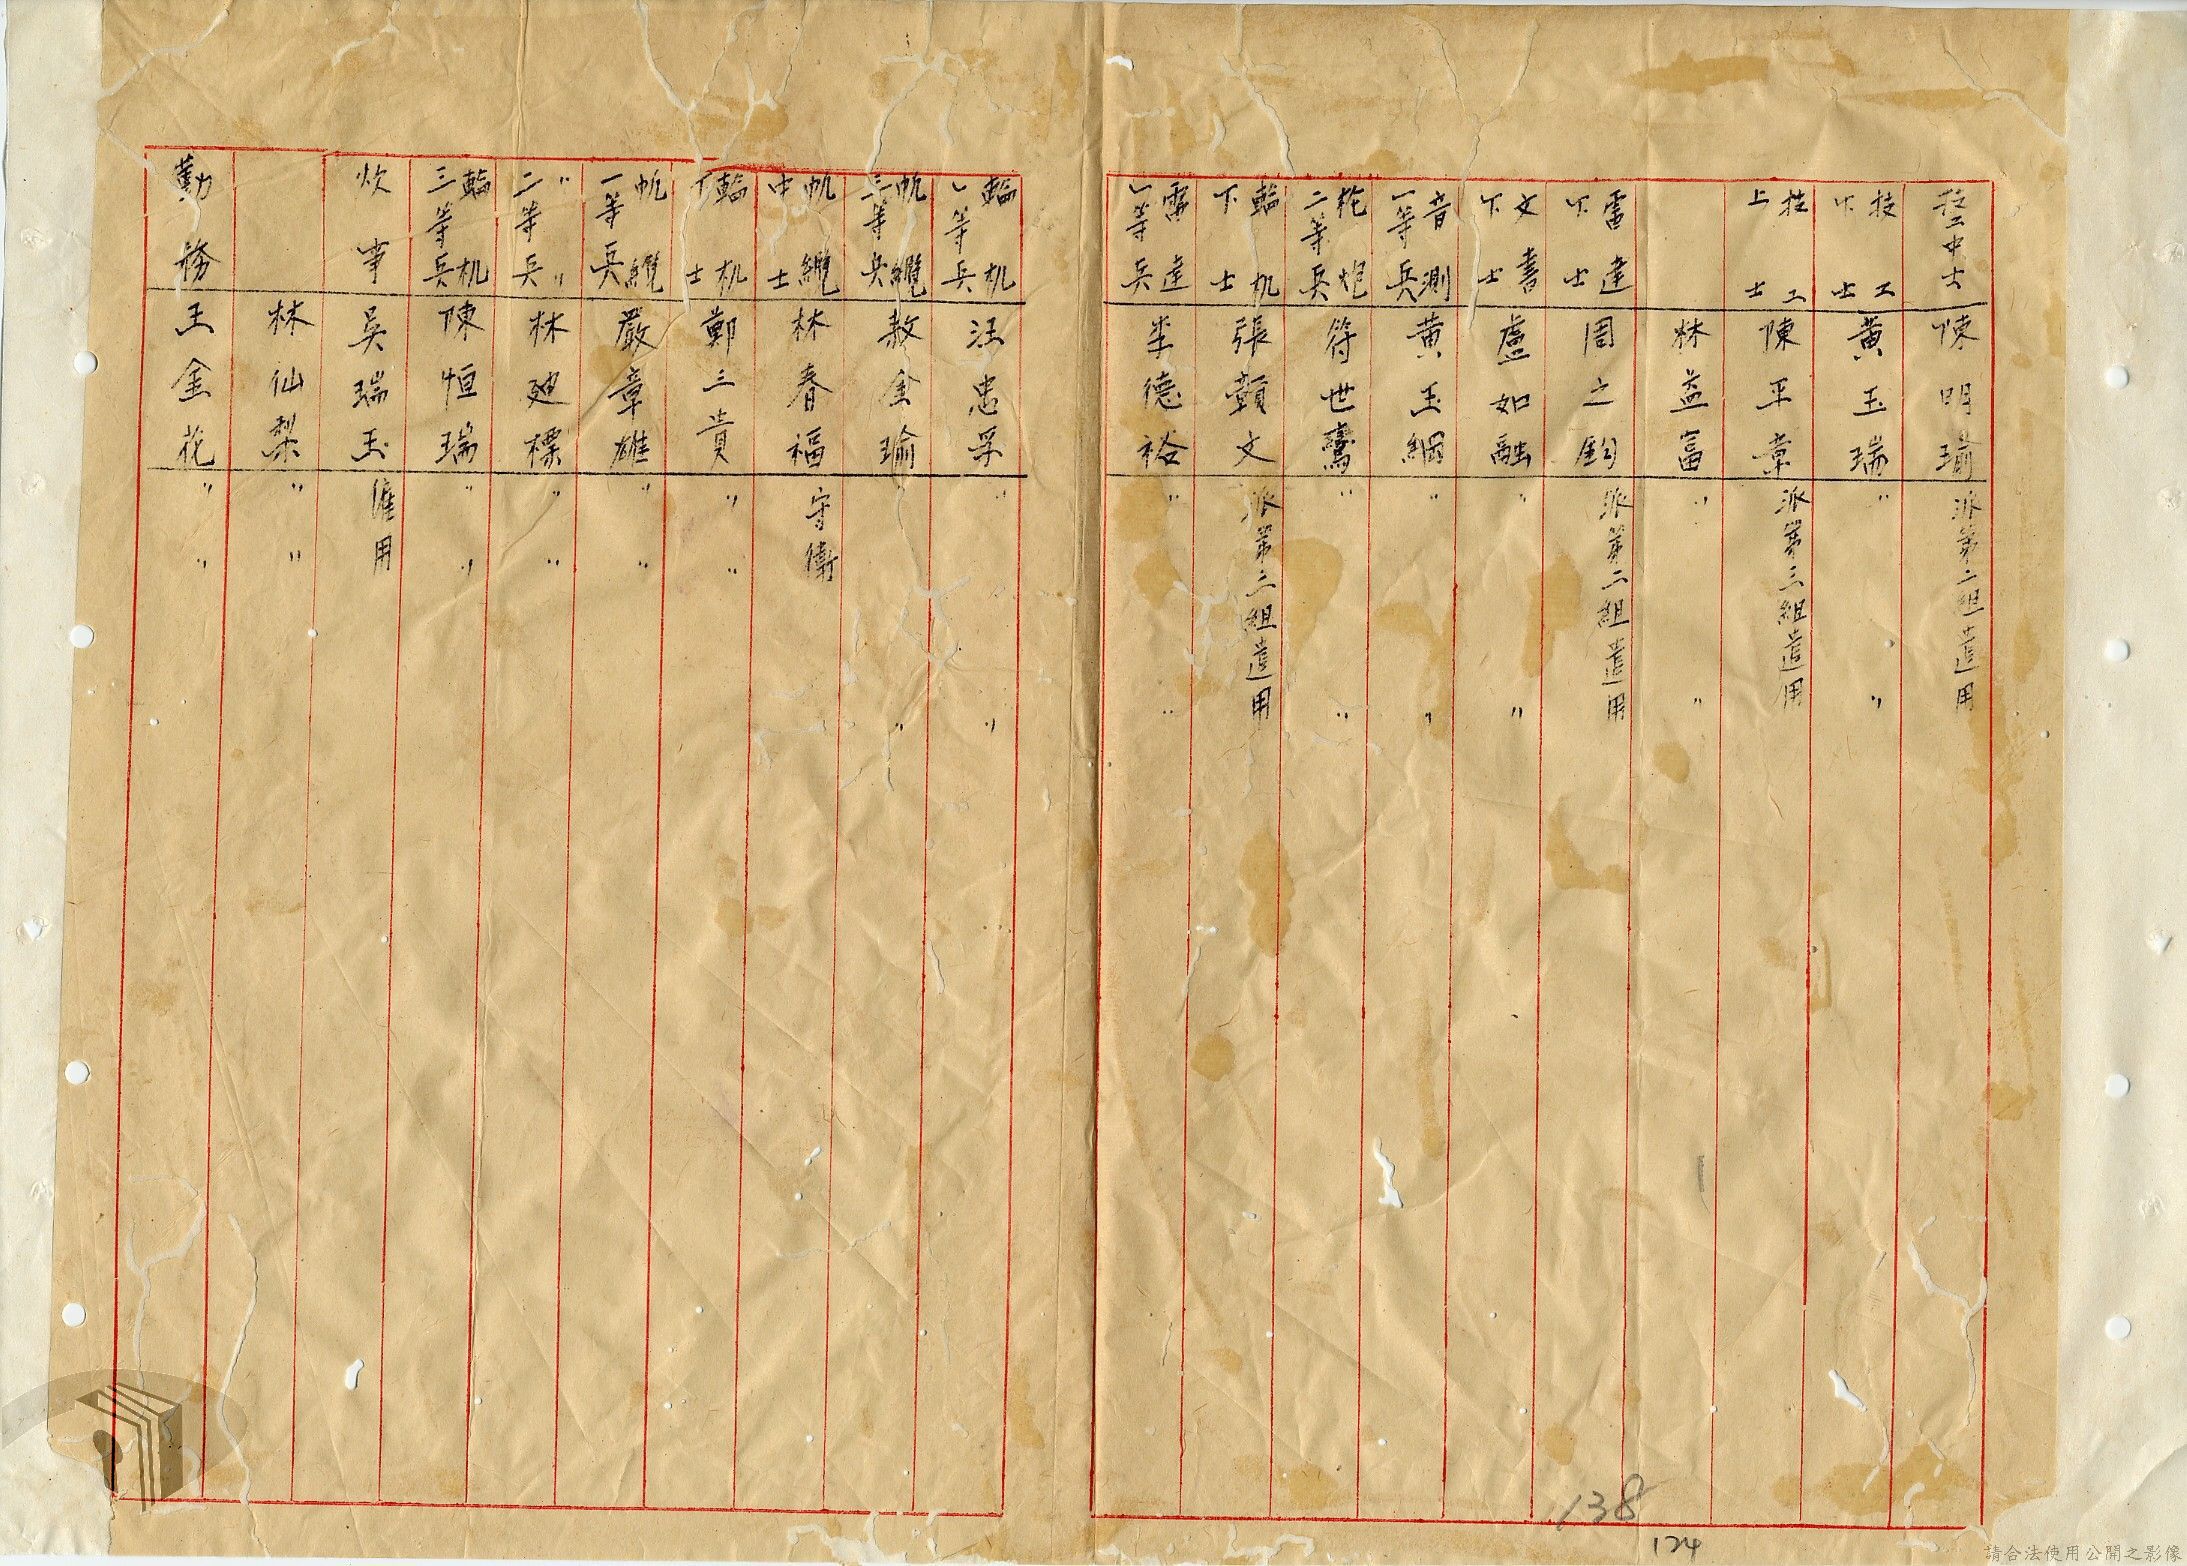 技工中士 陳明瑜 派第二組遣用
技工下士 黃玉瑞 〃 〃
技工上士 陳平章 派第三組遣用
林益富 〃 〃
雷達下士 周之鈞 派第二組遣用
文書下士 盧如融 〃 〃
音測一等兵 黃玉綱 〃 〃
枪炮二等兵 符世鸞 〃 〃
輪机下士 張顥文 派第三組遣用
雷達一等兵 李德裕 〃 〃
輪机一等兵 汪忠孚 〃 〃
帆纜三等兵 敖金瑜 〃 〃
帆纜中士 林春福 守衛
輪机下士 鄭三貴 〃 〃
帆纜一等兵 嚴章雄 〃 〃
〃〃二等兵 林廸標 〃 〃
輪机三等兵 陳恒瑞 〃 〃
炊事 吳瑞玉 僱用
林仙梨 〃 〃
勤務 王金花 〃 〃
138
124
請合法使用公開之影像